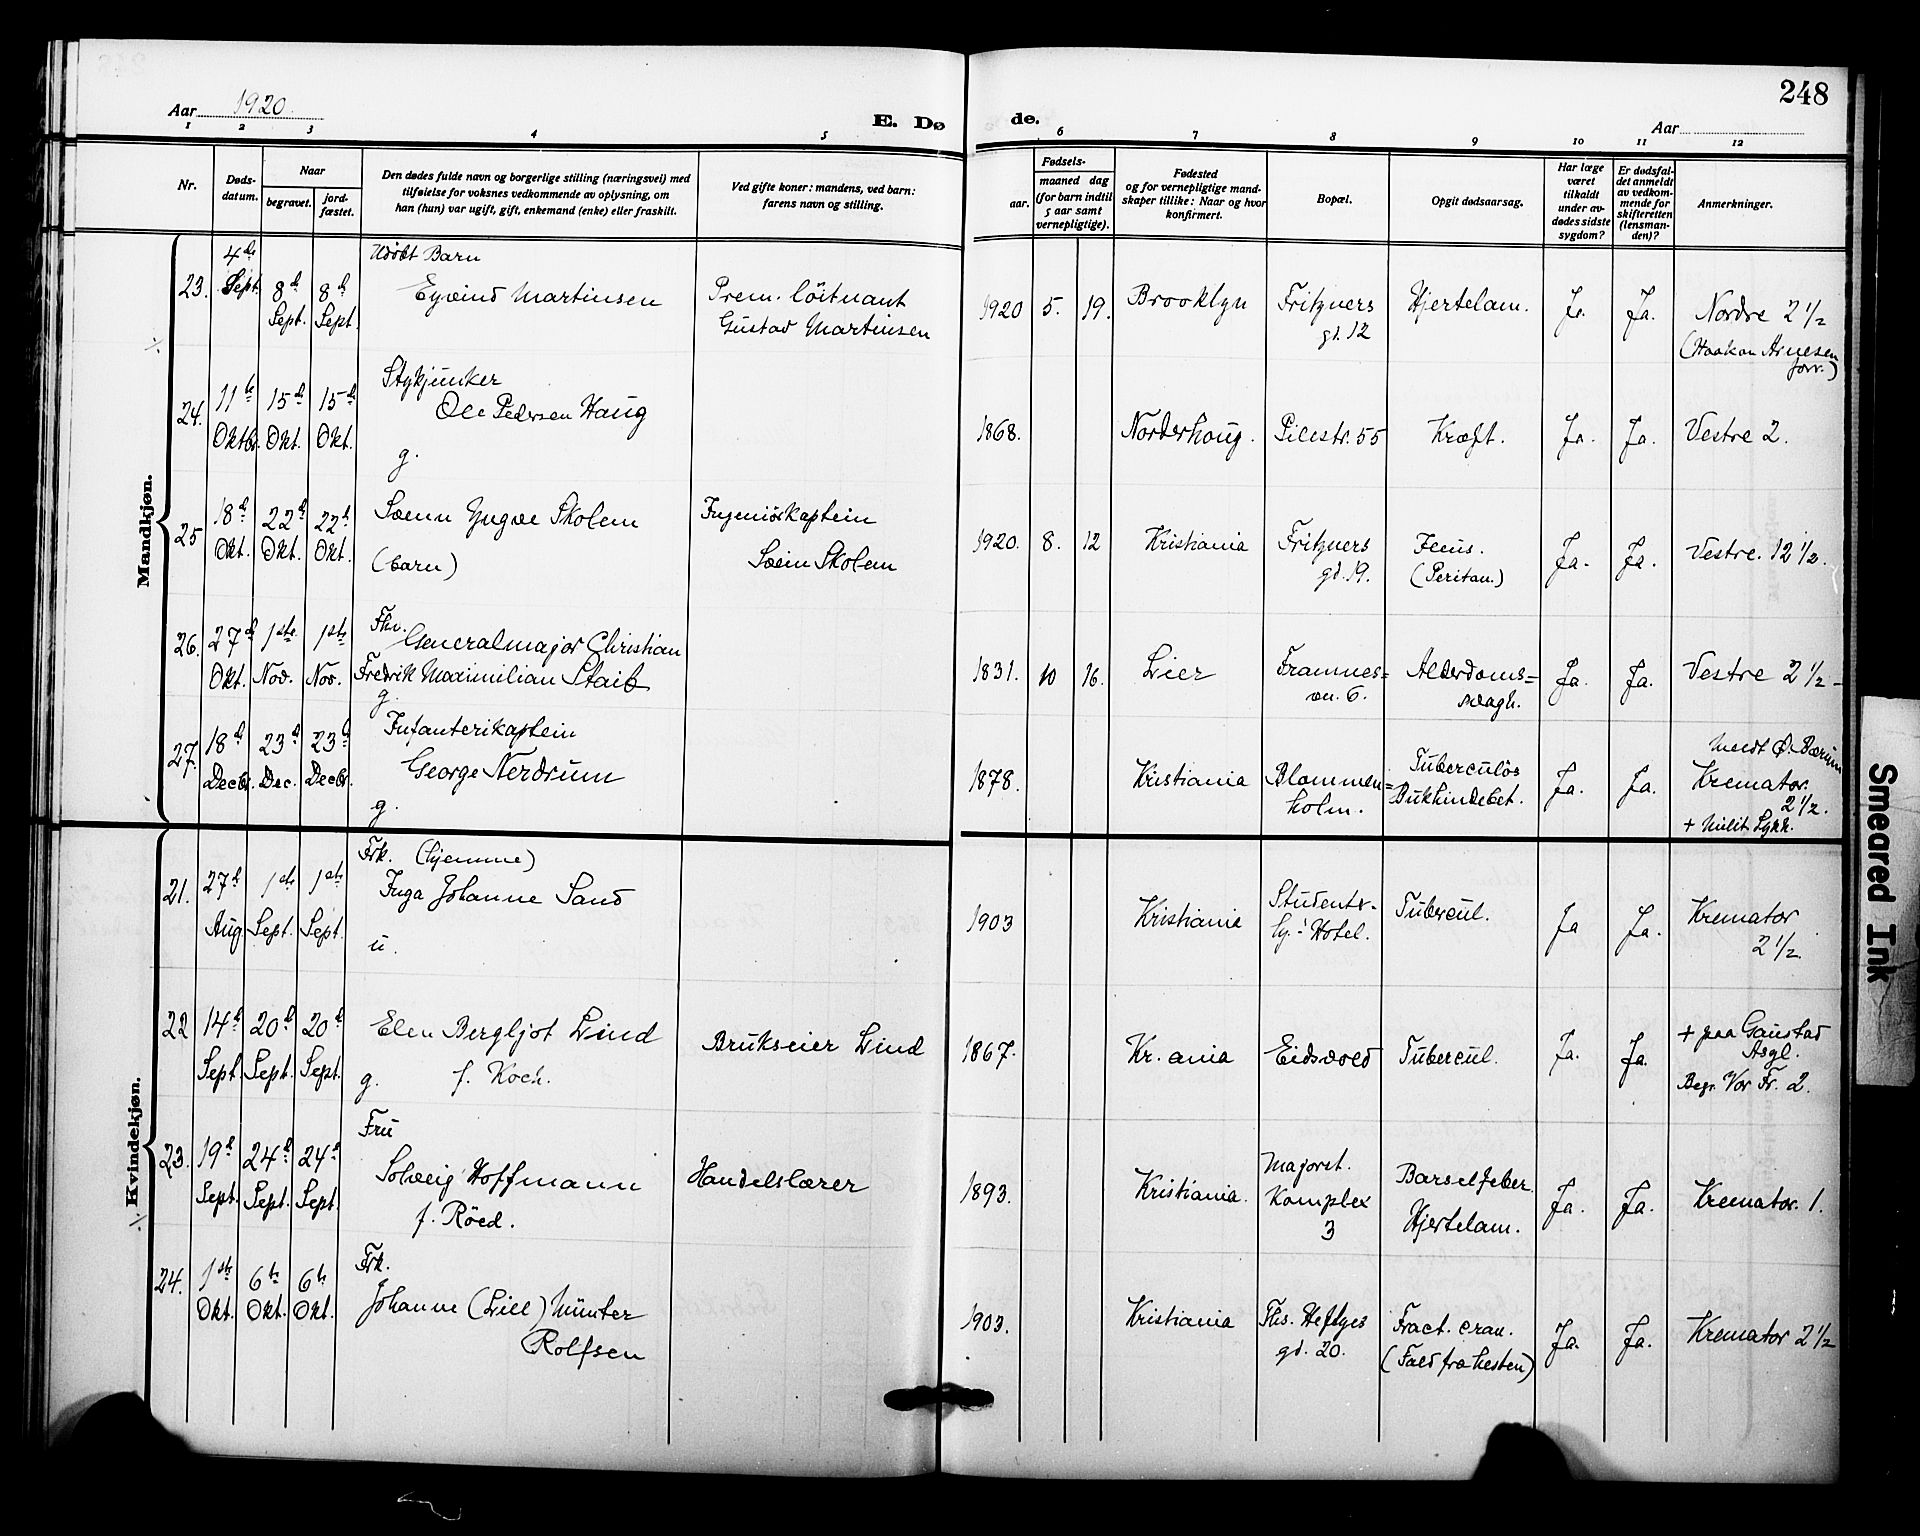 248
Aar 1920.
E. Dø
de.
Aar
1 2 3 4 5 6 7 8 9 10 11 12
Nr.
Døds-
datum.
Naar
begravet.
jord-
fæstet.
Den dødes fulde navn og borgerlige stilling (næringsvei) med
tilføielse for voksnes vedkommende av oplysning, om
han (hun) var ugift, gift, enkemand (enke) eller fraskilt.
Ved gifte koner: mandens, ved barn:
farens navn og stilling.
Fødsels-
aar.
maaned dag
(for barn indtil
5 aar samt
vernepligtige).
Fødested
og for vernepligtige mand-
skaper tillike: Naar og hvor
konfirmert.
Bopæl.
Opgit dødsaarsag.
Har læge
været
tilkaldt
under av-
dødes sidste
sygdom?
Er dødsfal-
det anmeldt
av vedkom-
mende for
skifteretten
(lensman-
den)?
Anmerkninger.
Mandkjøn.
23.
4de
Sept.
8d
Sept.
8d
Sept.
Udøbt Barn
Eyvind Martinsen
Prem. löitnant
Gustav Martinsen
1920 5. 19.
Brooklyn
Fritzners
gt. 12
Hjertelam.
Ja.
Ja.
Nordre 2 1/2
(Haakon Arnesen
forr.)
24.
11te
Oktbr.
15d
Okt.
15de
Okt.
Stykjunker
Ole Pedersen Haug
g.
1868.
Norderhoug.
Pilestr. 55
Kræft.
Ja.
Ja.
Vestre 2.
25
18d
Okt.
22d
Okt.
22d
Okt.
Svenn Yngve Skolem
(barn)
Ingeniörkaptein
Svein Skolem
1920. 8. 12
Kristiania
Fritzners
gd. 19.
Ileus.
(Peritan.)
Ja.
Ja.
Vestre. 12 1/2.
26.
27d
Okt.
1ste
Nov.
1ste
Nov.
Fhv.
Generalmajor Christian
Fredrik Maximilian Staib
g.
1831. 10 16.
Lier
Framnes=
vn. 6.
Alderdoms=
svagh.
Ja.
Ja.
Vestre 2 1/2
27.
18d
Decbr.
23d
Dec.
23d
Decbr.
Infanterikaptein
George Nerdrum
g.
1878.
Kristiania
Blommen=
holm.
Tuberculös
Bukhindebet.
Ja.
Ja.
Meldt Ø. Bærum
Kremator.
2 1/2.
+ Milit Sykh.
Kvindekjøn.
21.
27d
Aug
1ste
Sept.
1ste
Sept.
Frk. (hjemme)
Inga Johanne Sand
u.
1903
Kristiania
Studenter-
Hotel.
Tubercul.
Ja
Ja.
Kremator
2 1/2.
22
14d
Sept
20d
Sept.
20d
Sept.
Elen Bergljot Lind
g. f. Koch.
Brukseier Lind
1867.
Kr.ania
Eidsvold
Tubercul.
Ja.
Ja.
+ paa Gaustad
Asyl.
Begr. Vor Fr. 2.
23.
19d
Sept.
24d
Sept.
24d
Sept.
Fru
Solveig Hoffmann
f. Röed.
Handelslærer
1893.
Kristiania.
Majorst.
Komplex
3
Barselfeber.
Hjertelam.
Ja.
Ja.
Kremator. 1.
24.
1ste
Okt.
6te
Okt.
6te
Okt.
Frk.
Johanne (Lill) Münter
Rolfsen
1903.
Kristiania
Ths. Heftyes
gd. 20.
Fract. cran.
(Fald fra hesten)
Ja.
Ja.
Kremator 2 1/2
Smeared Ink